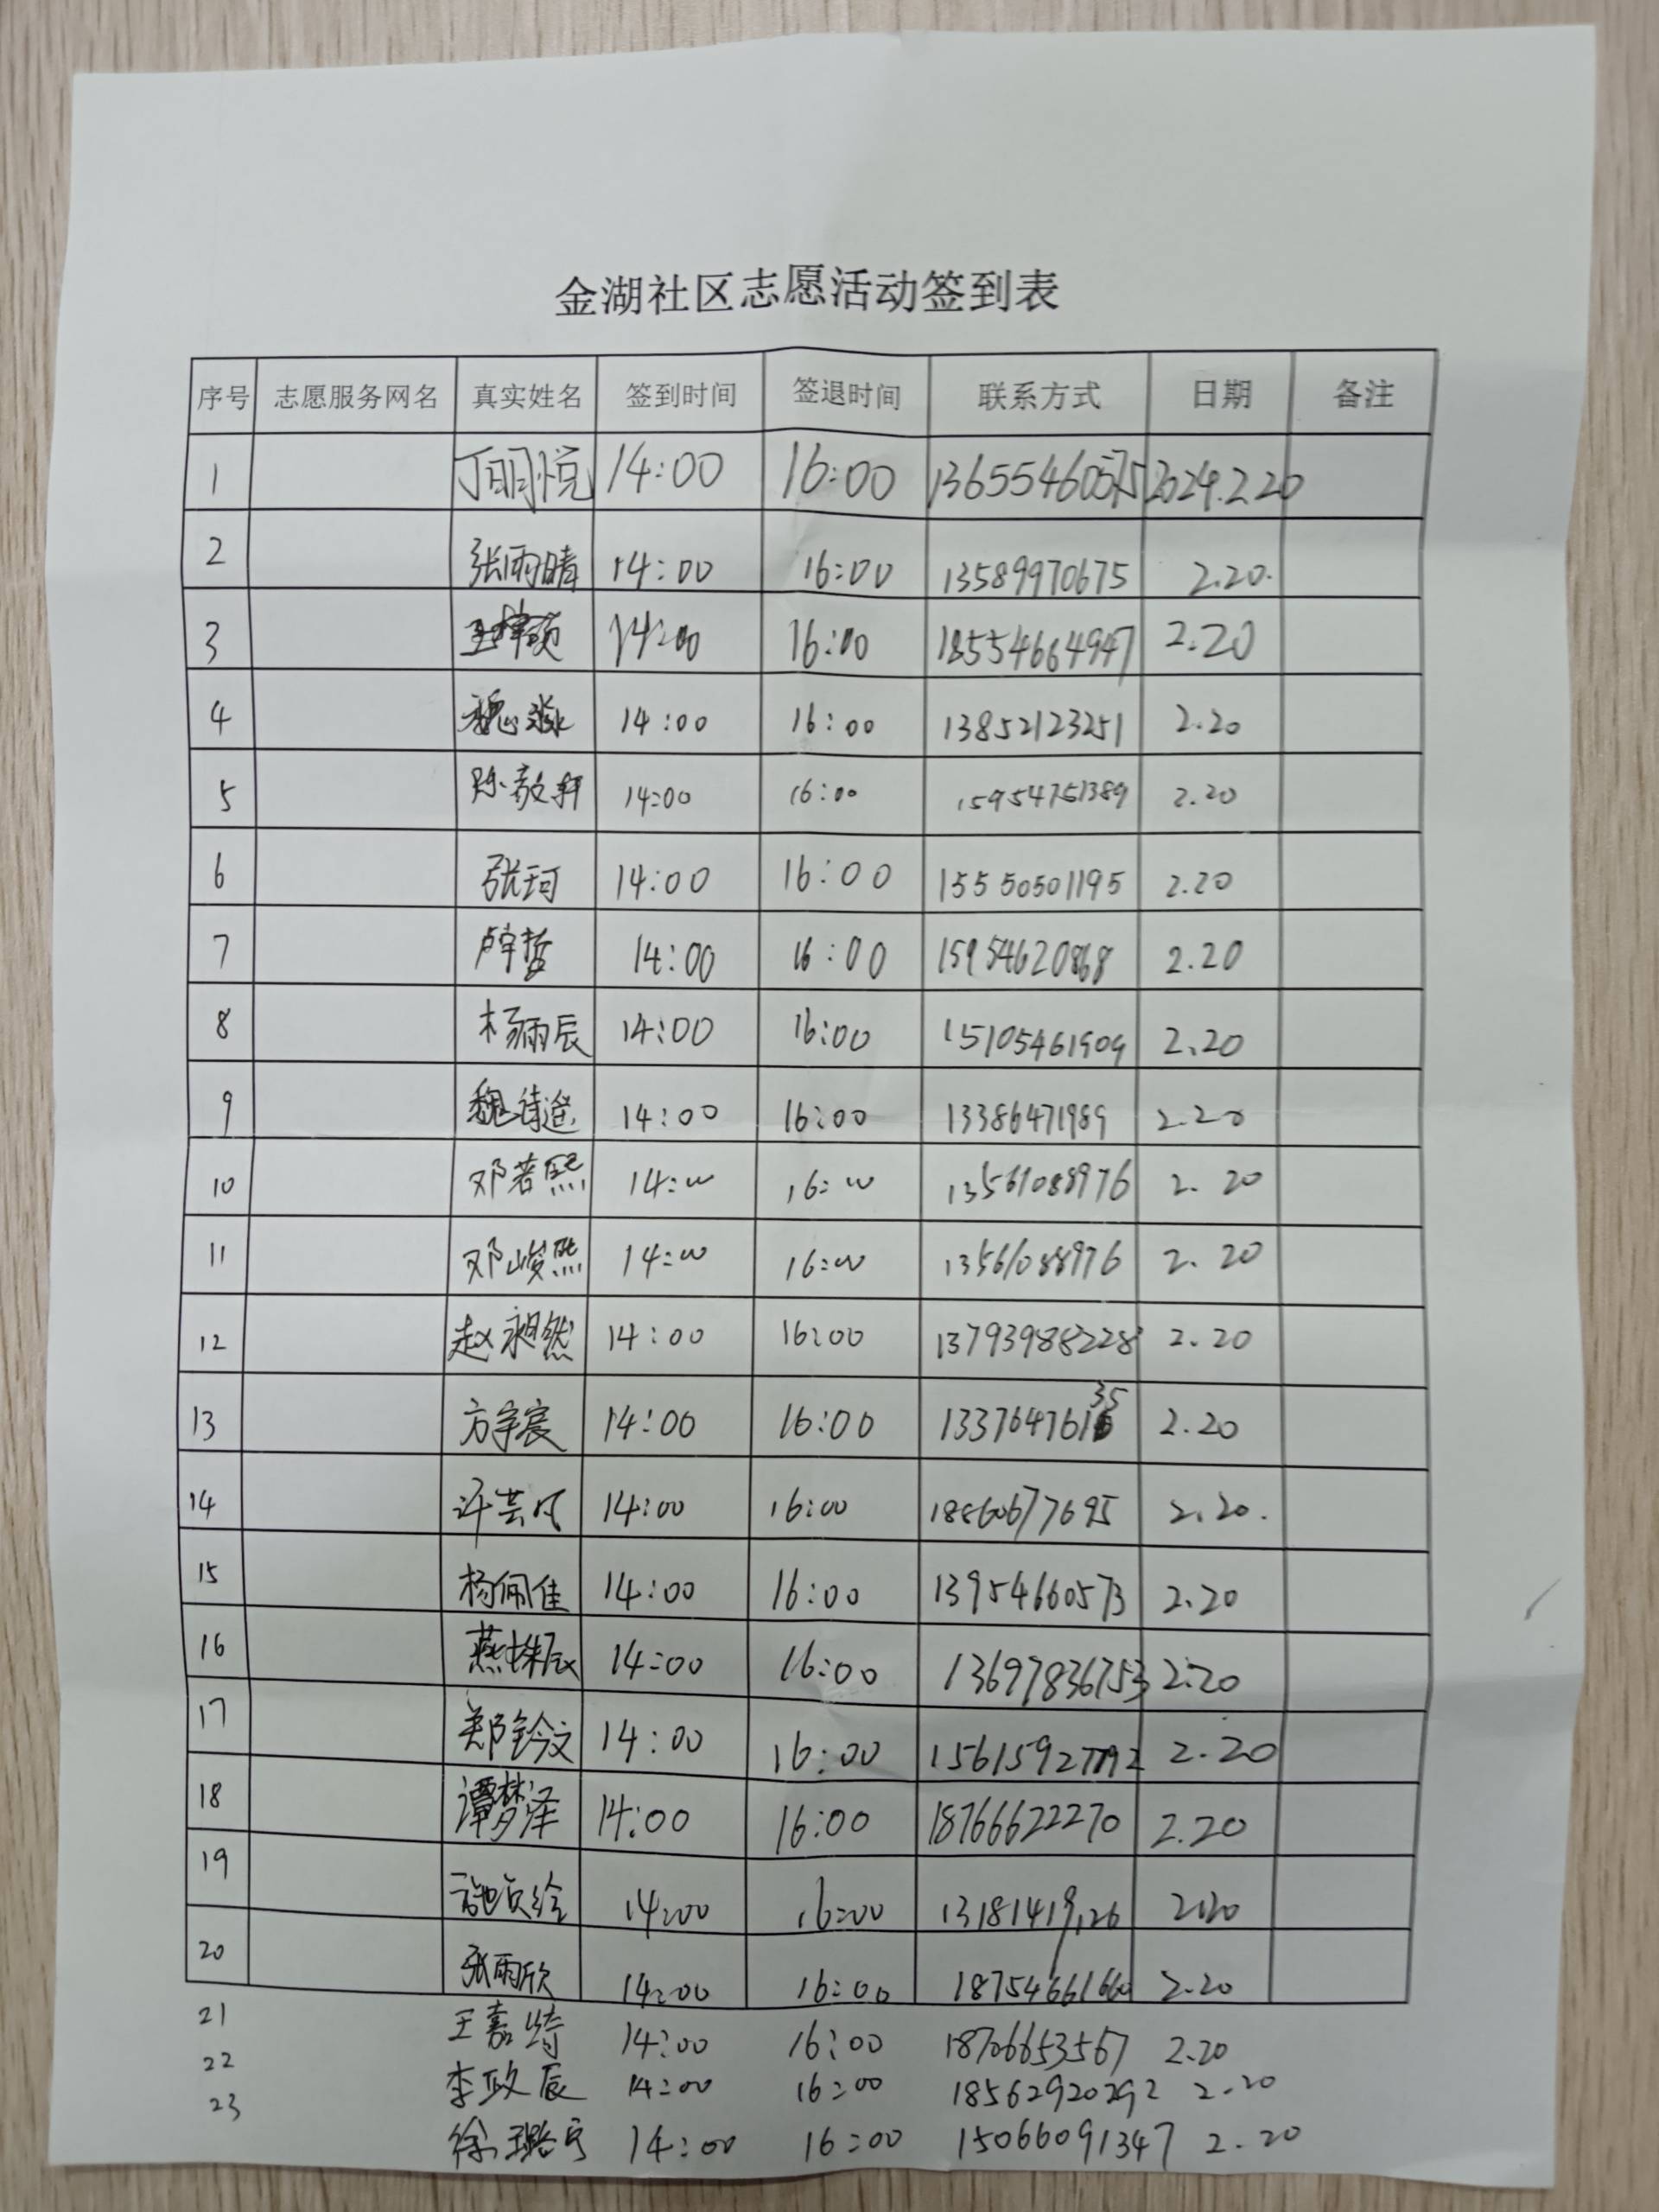 金湖社区志愿活动签到表
序号 志愿服务网名 真实姓名 签到时间 签退时间 联系方式 日期 备注
1 丁明悦 14:00 16:00 2024.2.20
2 张雨晴 14:00 16:00 13589970675 2.20.
3 14:00 16:00 18554664947 2.20
4 魏淼 14:00 16:00 13852123251 2.20
5 陈毅轩 14:00 16:00 15954751389 2.20
6 张珂 14:00 16:00 15550501195 2.20
7 卢宇哲 14:00 16:00 15954620868 2.20
8 杨雨辰 14:00 16:00 15105461909 2.20
9 14:00 16:00 13386471989 2.20
10 邓若熙 14:00 16:00 13561088976 2.20
11 邓峻熙 14:00 16:00 13561088976 2.20
12 赵昶然 14:00 16:00 13793988228 2.20
13 方宇宸 14:00 16:00 13376476135 2.20
14 许芸凡 14:00 16:00 18860677695 2.20.
15 杨佩佳 14:00 16:00 13954660573 2.20
16 14:00 16:00 13697836753 2.20
17 郑钤文 14:00 16:00 2.20
18 谭梦泽 14:00 16:00 18766622270 2.20
19 14:00 16:00 13181419126 2.20
20 张雨欣 14:00 16:00 18754661660 2.20
21 王嘉 14:00 16:00 18706653567 2.20
22 李政辰 14:00 16:00 18562920292 2.20
23 徐璐宁 14:00 16:00 15066091347 2.20